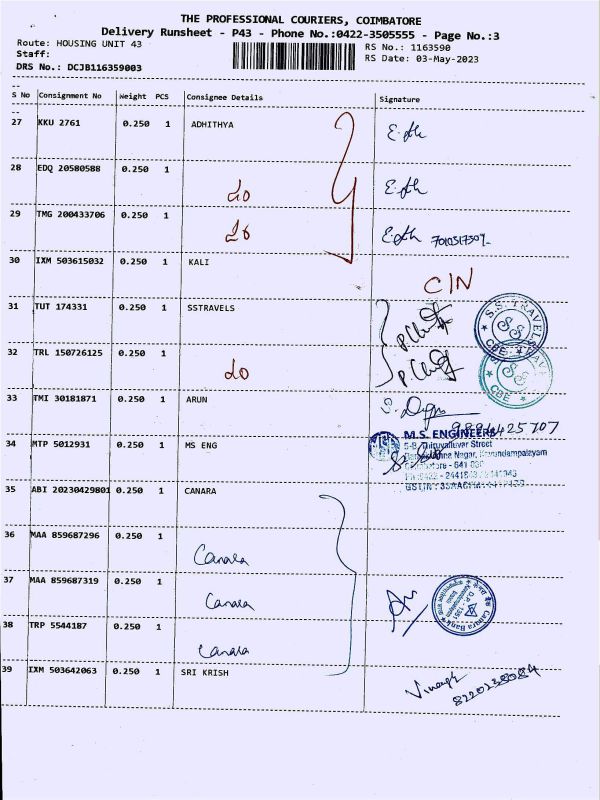 THE PROFESSIONAL COURIERS, COIMBATORE
Delivery Runsheet - P43 - Phone No.:0422-3505555 - Page No.:3
Route: HOUSING UNIT 43 RS No.: 1163590
Staff: RS Date: 03-May-2023
DRS No.: DCJB116359003
S No Consignment No Weight PCS Consignee Details Signature
27 KKU 2761 0.250 1 ADHITHYA
28 EDQ 20580588 0.250 1
29 TMG 200433706 0.250 1
30 IXM 503615032 0.250 1 KALI
C/N
31 TUT 174331 0.250 1 SSTRAVELS
S.S. TRAVELS
CBE
32 TRL 150726125 0.250 1
CBE
33 TMI 30181871 0.250 1 ARUN
9894425707
34 MTP 5012931 0.250 1 MS ENG
M.S. ENGINEERS
Thiruvalluvar Street
Nagar, Kavundampalayam
35 ABI 20230429801 0.250 1 CANARA
36 MAA 859687296 0.250 1
Canara
37 MAA 859687319 0.250 1
Canara
Canara Bank
38 TRP 5544187 0.250 1
Canara
39 IXM 503642063 0.250 1 SRI KRISH
8220238084